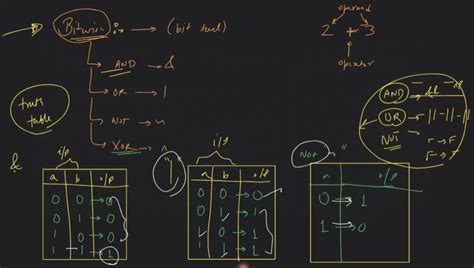 Bitwise :- → (bit level)
→ AND → &
→ OR → |
→ NOT →
→ XOR →
operand
2 + 3
operator
truth table
AND
OR - || - || -
NOT
&
i/p
a b o/p
0 0 → 0
0 1 → 0
1 0 → 0
1 1 → 1
"|"
i/p
a b o/p
0 0 → 0
0 1 → 1
1 0 → 1
1 1 → 1
"Not"
o/p
0 → 1
1 → 0